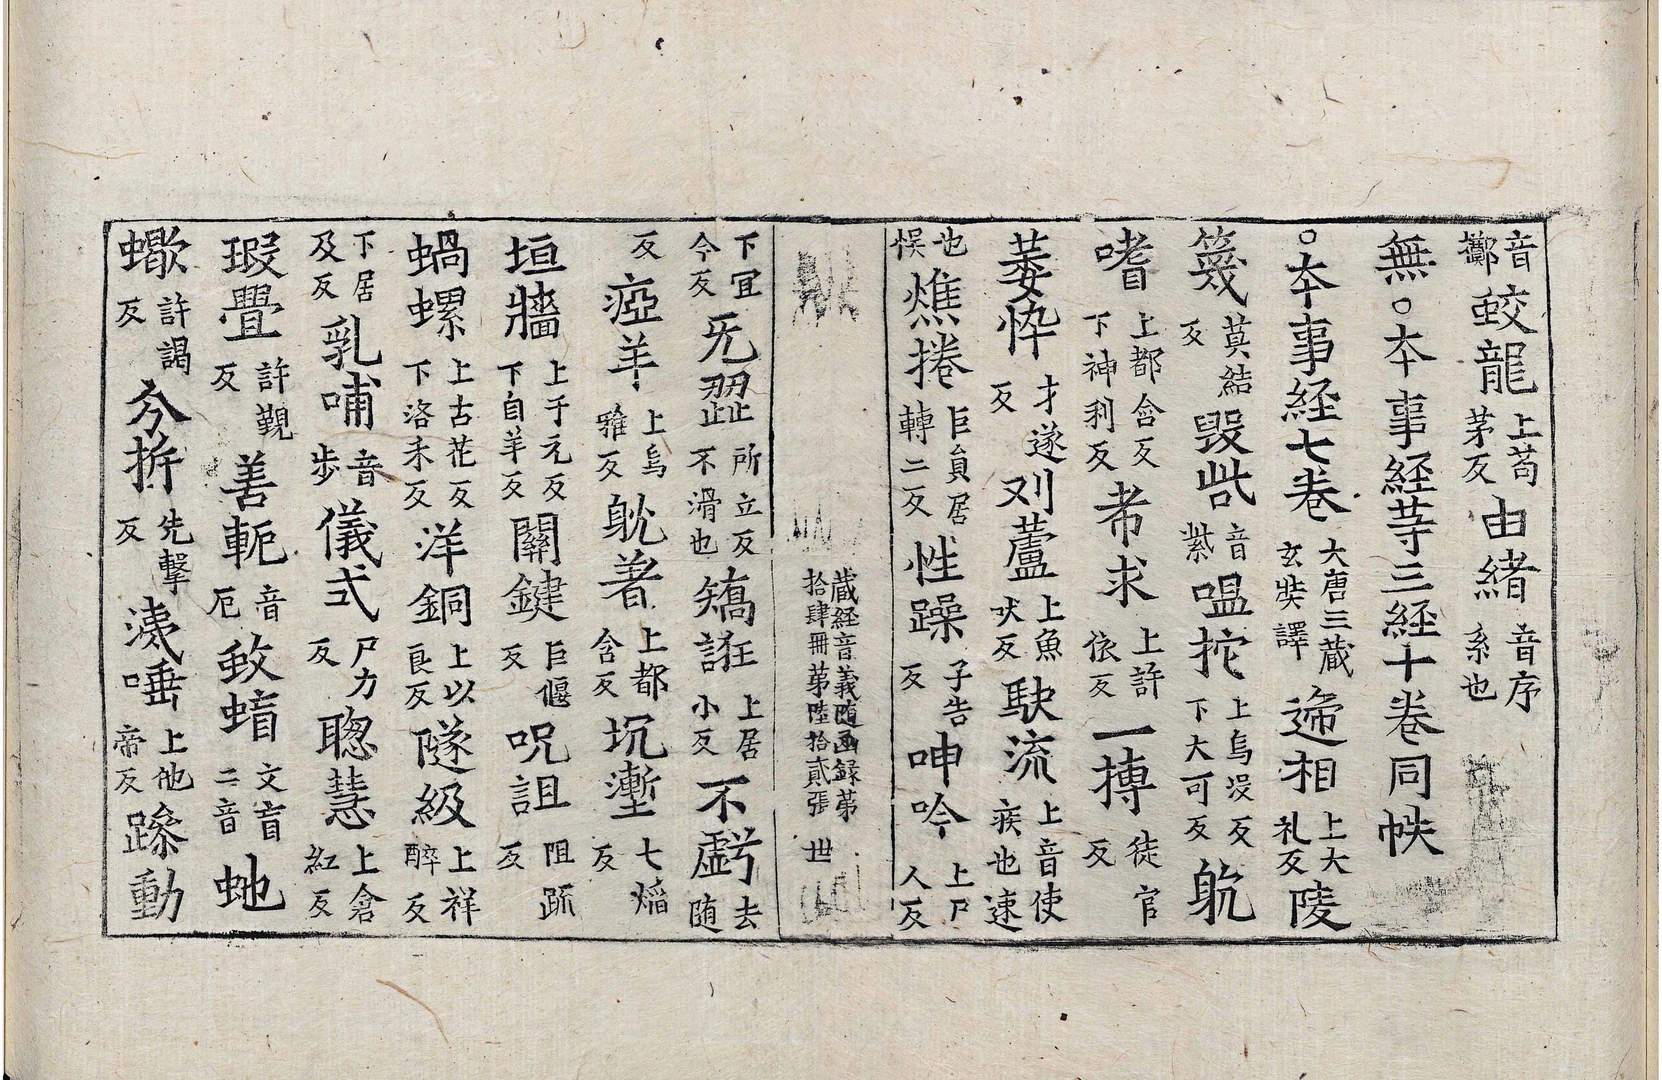 音擲蛟龍上苟茅反由緒音序系也
無○本事経䒭三経十卷同帙
○本事経七卷大唐三藏玄奘譯遞相上大礼反陵
篾莫結反毀呰音紫嗢拕上烏沒反下大可反躭
嗜上都含反下神利反希求上許依反一摶徒官反
萎悴才遂反刈蘆上魚吠反駛流上音使疾也速
也悞燋捲巨員居轉二反性躁子告反呻吟上尸人反
藏経音義随函録第拾肆冊第陸拾貳張 世
下冝今反旡澀所立反不滑也矯誑上居小反不虧去随
反瘂羊上烏雅反躭著上都含反坑塹七焰反
垣牆上于元反下自羊反關鍵巨偃反呪詛阻䟽反
蝸螺上古花反下洛禾反洋銅上以良反隧級上祥醉反
下居及反乳哺音步儀式尸力反聰慧上倉紅反
瑕舋許覲反善軛音厄蚊蝱文盲二音虵
蠍許謁反分析先擊反洟唾上他帝反躁動